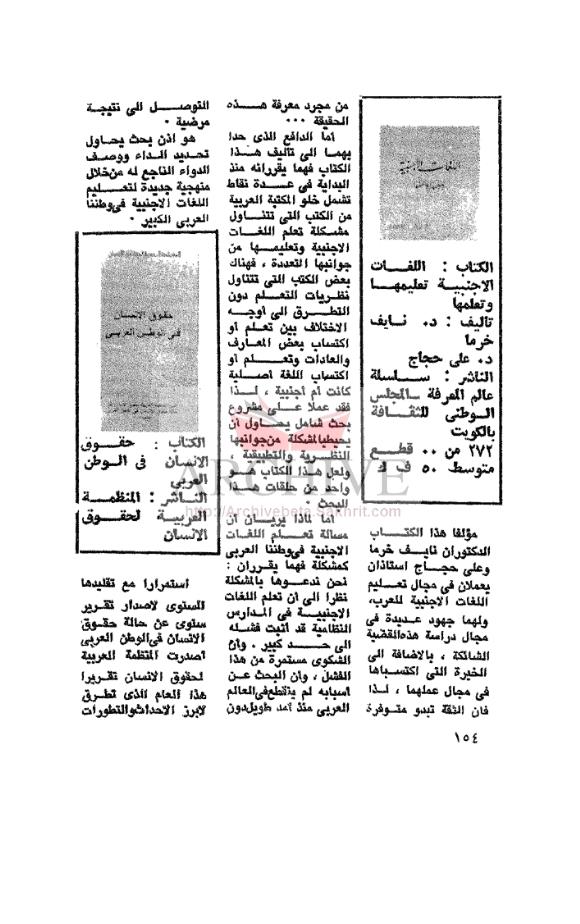 اللغات الاجنبية
الكتاب : اللغـــات
الاجنبية تعليمهـــا
وتعلمها
تأليف : د. نــايف
خرما
د. على حجاج
الناشر : سـلسلة
عالم المعرفة ـ المجلس
الـوطنى للثقـافة
بالكويت
٢٧٢ من ٠٠ قطـــع
متوسط ٥٠ ف ك
مؤلفا هذا الكتـــاب
الدكتوران نايــف خرما
وعلى حجــاج استاذان
يعملان فى مجال تعــليم
اللغات الاجنبية للعرب،
ولهما جهود عـديدة فى
مجال دراسة هذه القضية
الشائكة ، بالاضافة الى
الخبرة التى اكتســباها
فى مجال عملهما ، لــذا
فان الثقة تبدو متـوفرة
من مجرد معرفة هـــذه
الحقيقة ٠٠٠
أما الدافع الذى حدا
بهمـا الى تأليف هــذا
الكتاب فهما يقررانه منذ
البداية فى عــدة نقاط
تشمل خلو المكتبة العربية
من الكتب التى تتنــاول
مشـكلة تعلم اللغــات
الاجنبية وتعليمــها من
جوانبها المتعددة ، فهناك
بعض الكتب التى تتناول
نظريات التعــلم دون
التطــرق الى أوجــه
الاختلاف بين تعلم أو
اكتساب بعض المعارف
والعادات وتعــلم أو
اكتساب اللغة أصــلية
كانت أم أجنبية ، لــذا
فقد عملا عـلى مشروع
بحث شامل يحــاول أن
يحيط بالمشكلة من جوانبها
النظـرية والتطبيقية ،
ولعل هــذا الكتاب هــو
واحد من حلقات هــذا
البحث ٠
أما لماذا يريــان أن
مسألة تعــلم اللغات
الاجنبية فى وطننا العربى
كمشكلة فهما يقـرران :
نحن ندعـوها بالمشكلة
نظرا الى أن تعلم اللغات
الاجنبيــة فى المدارس
النظامية قد أثبت فشـله
الى حــد كبير . وأن
الشكوى مستمرة من هذا
الفشل ، وأن البحث عـن
أسبابه لم ينقطع فى العالم
العربى منذ أمد طويل دون
التوصــل الى نتيجــة
مرضية ٠
هو اذن بحث يحـاول
تحديد الـداء ووصـف
الدواء الناجع له من خلال
منهجية جديدة لتعــليم
اللغات الاجنبية فى وطننا
العربى الكبير ٠
حقوق الانسان
فى الوطن العربى
الكتاب : حقــوق
الانسان فى الـوطن
العربى
النـاشر : المنظمـة
العربية لحقــوق
الانسان
استمرارا مع تقليدها
السنوى لاصدار تقـرير
سنوى عن حالة حقـوق
الانسان فى الوطن العربى
أصدرت المنظمة العربية
لحقوق الانسان تقـريرا
هذا العام الذى تطـرق
لابرز الاحداث والتطورات
١٥٤
ARCHIVE
http://Archivebeta.Sakhrit.com